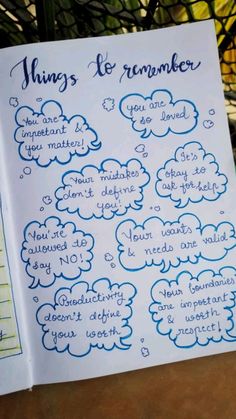 Things to remember
You are
important &
you matter!
you are
so loved
Your mistakes
don't define
you!
It's
okay to
ask for help
You're
allowed to
say NO!
Your wants
& needs are valid
Productivity
doesn't define
your worth
Your boundaries
are important
& worth
respect!